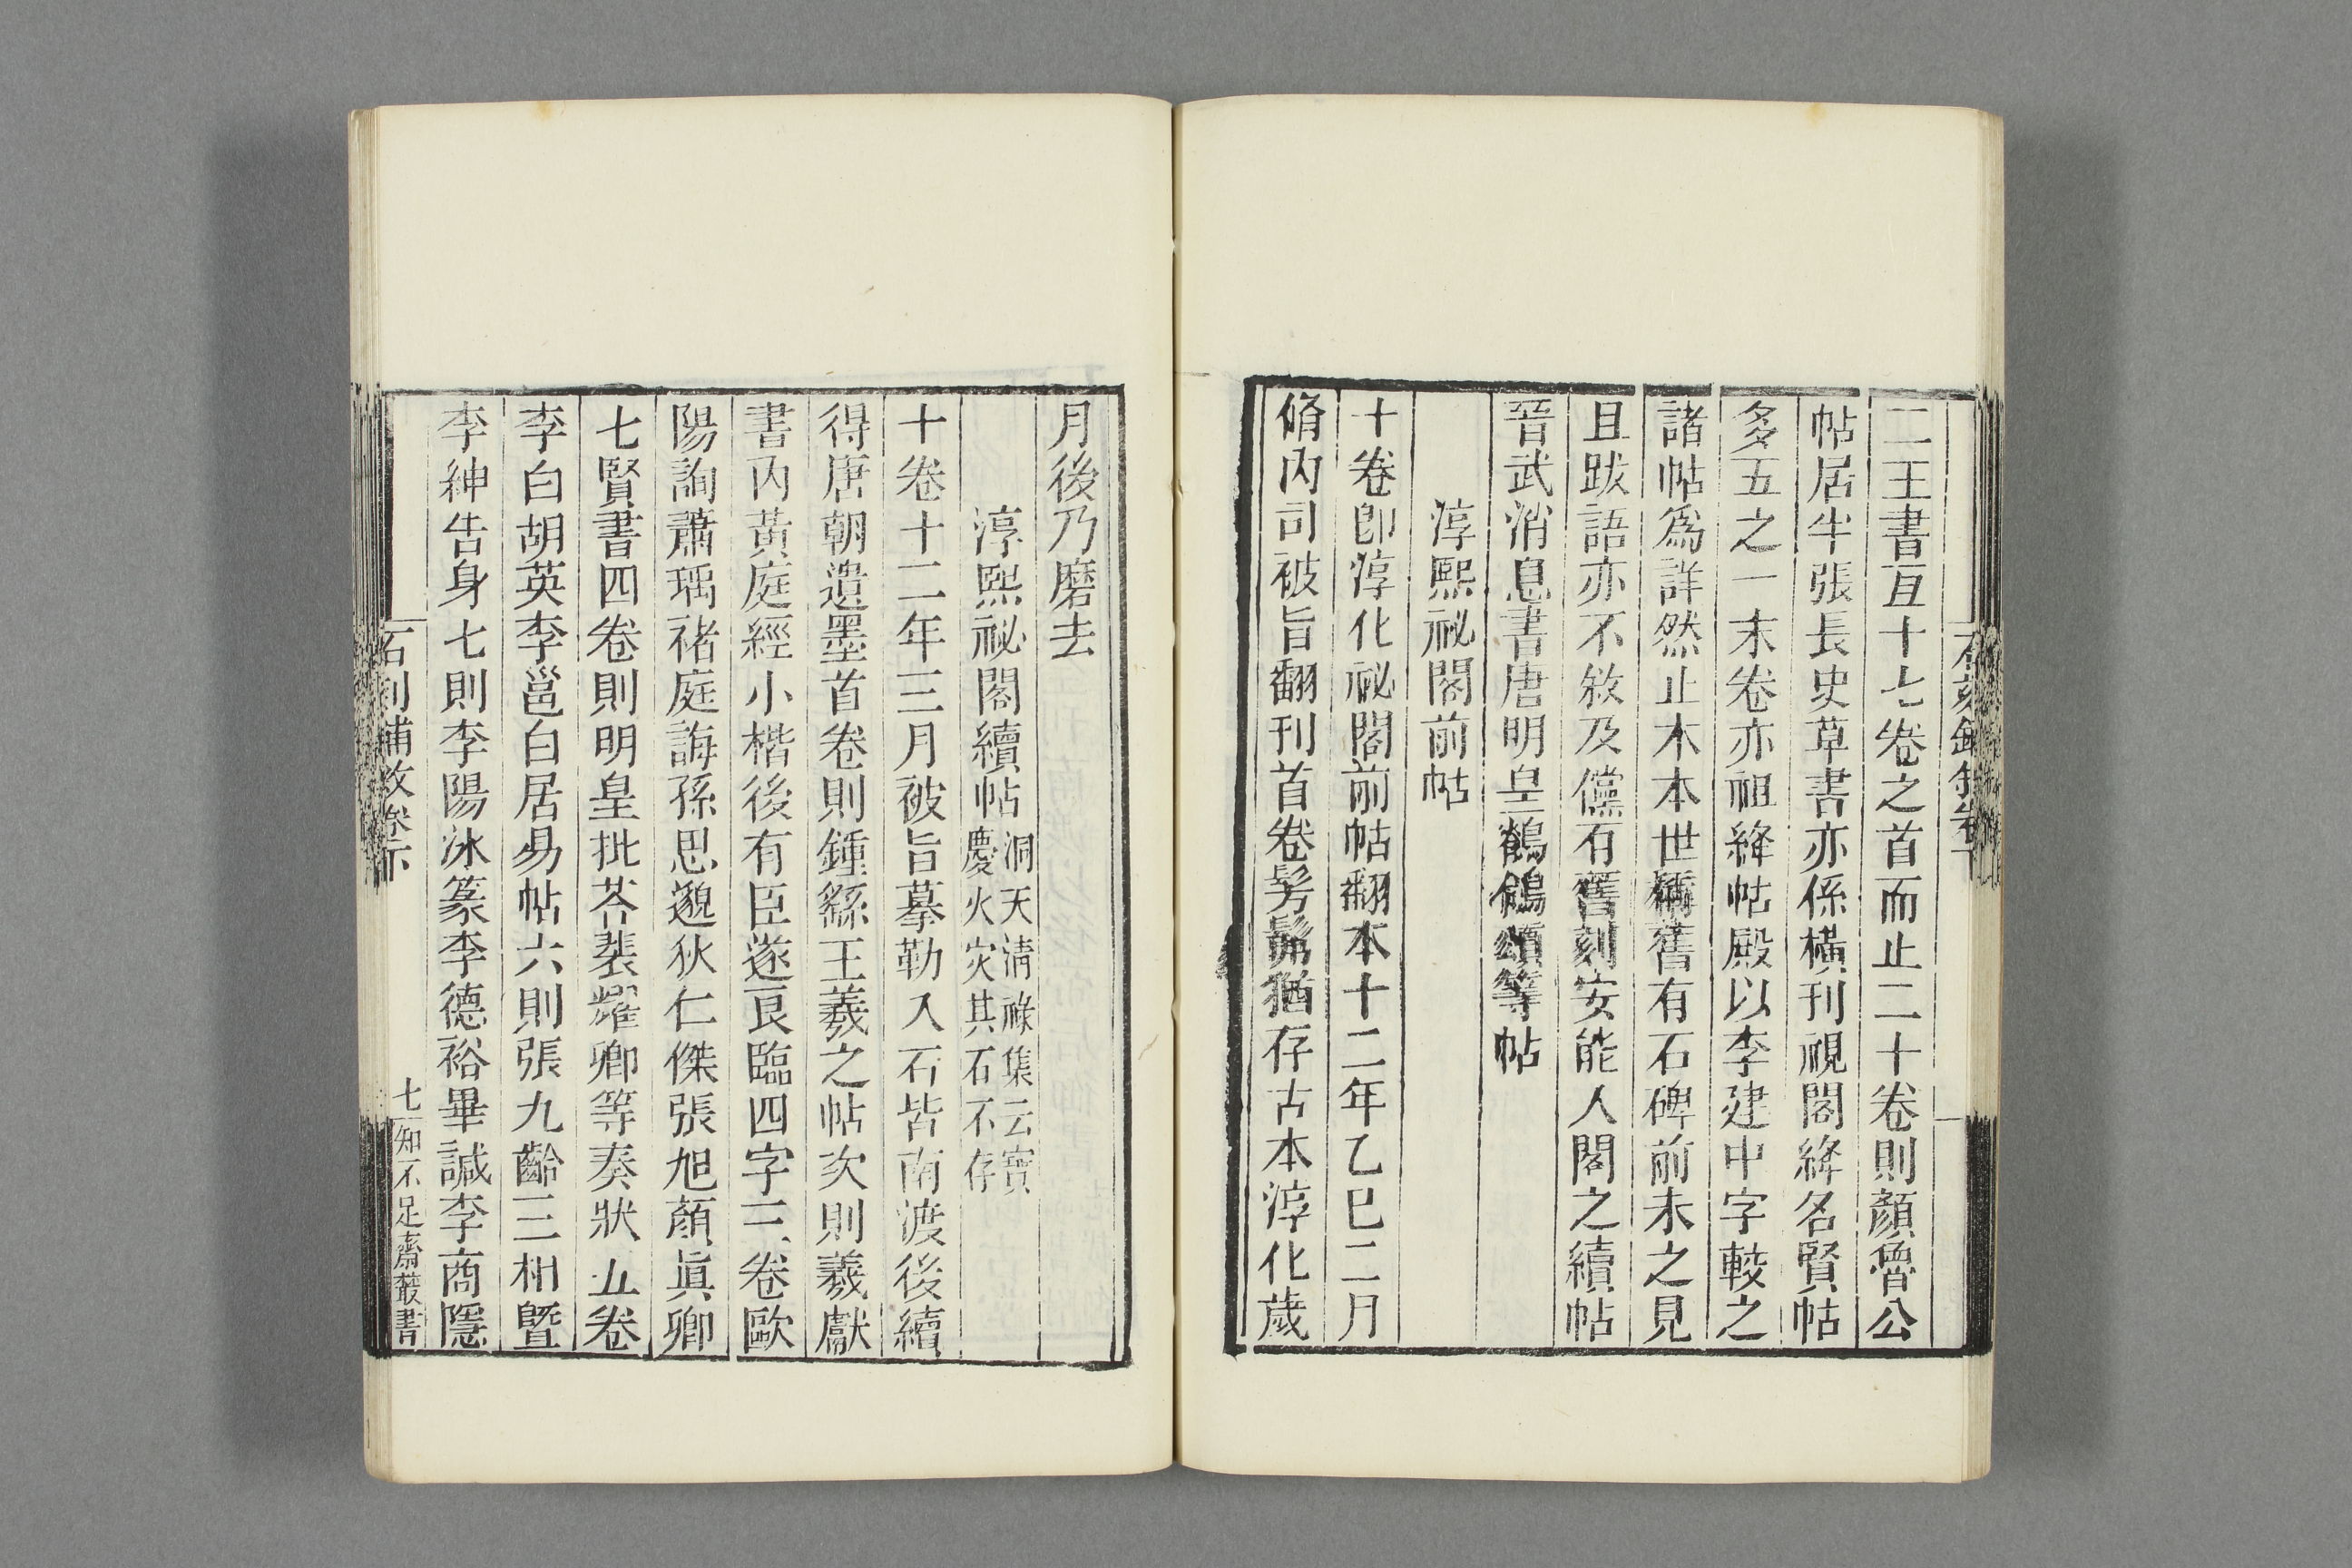 二王書亘十七卷之首而止二十卷則顔魯公
帖居半張長史草書亦係橫刊視閣絳名賢帖
多五之一末卷亦祖絳帖殿以李建中字較之
諸帖爲詳然止木本世稱舊有石碑前未之見
且跋語亦不敘及儻石舊刻安能人閣之續帖
晉武消息書唐明皇鶺鴒頌等帖
淳熙祕閣前帖
十卷卽淳化祕閣前帖翻本十二年乙巳二月
脩內司被旨翻刊首卷髣髴猶存古本淳化歲
月後乃磨去
淳熙祕閣續帖洞天淸祿集云寳
慶火災其石不存
十卷十二年三月被旨摹勒入石皆南渡後續
得唐朝遺墨首卷則鍾繇王羲之帖次則羲獻
書內黃庭經小楷後有臣遂良臨四字三卷歐
陽詢蕭瑀褚庭誨孫思邈狄仁傑張旭顔眞卿
七賢書四卷則明皇批荅裴耀卿等奏狀五卷
李白胡英李邕白居易帖六則張九齡三相曁
李紳告身七則李陽冰篆李德裕畢諴李商隱
石刻鋪敘卷下
七
知不足齋叢書